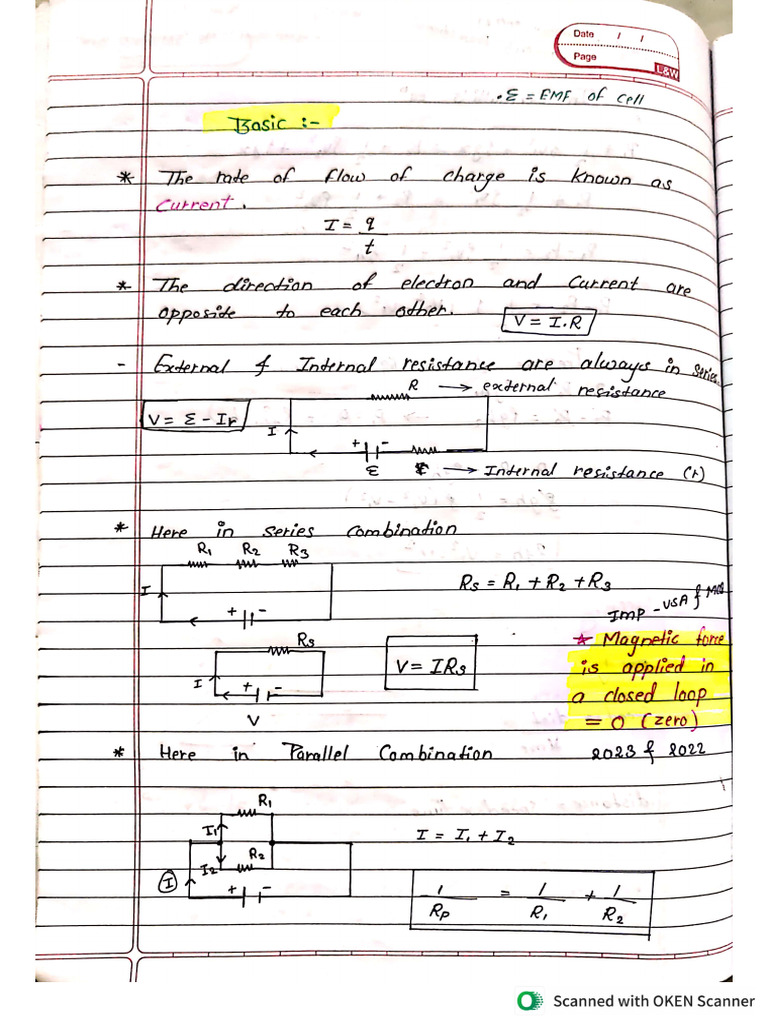 Date / /
Page
L&W
• Ɛ = EMF of cell
Basic :-
* The rate of flow of charge is known as
Current.
I = q
t
* The direction of electron and Current are
opposite to each other. V = I.R
- External & Internal resistance are always in series.
R → external resistance
V = Ɛ - Ir
I
+ -
Ɛ → Internal resistance (r)
* Here in series combination
R1 R2 R3
Rs = R1 + R2 + R3
I
+ -
IMP - VSA & MCQ
Rs
V = IRs
I
+ -
V
* Magnetic force
is applied in
a closed loop
= 0 (zero)
* Here in Parallel Combination 2023 & 2022
R1
I1
I = I1 + I2
R2
I2
I
+ -
1 = 1 + 1
Rp R1 R2
Scanned with OKEN Scanner